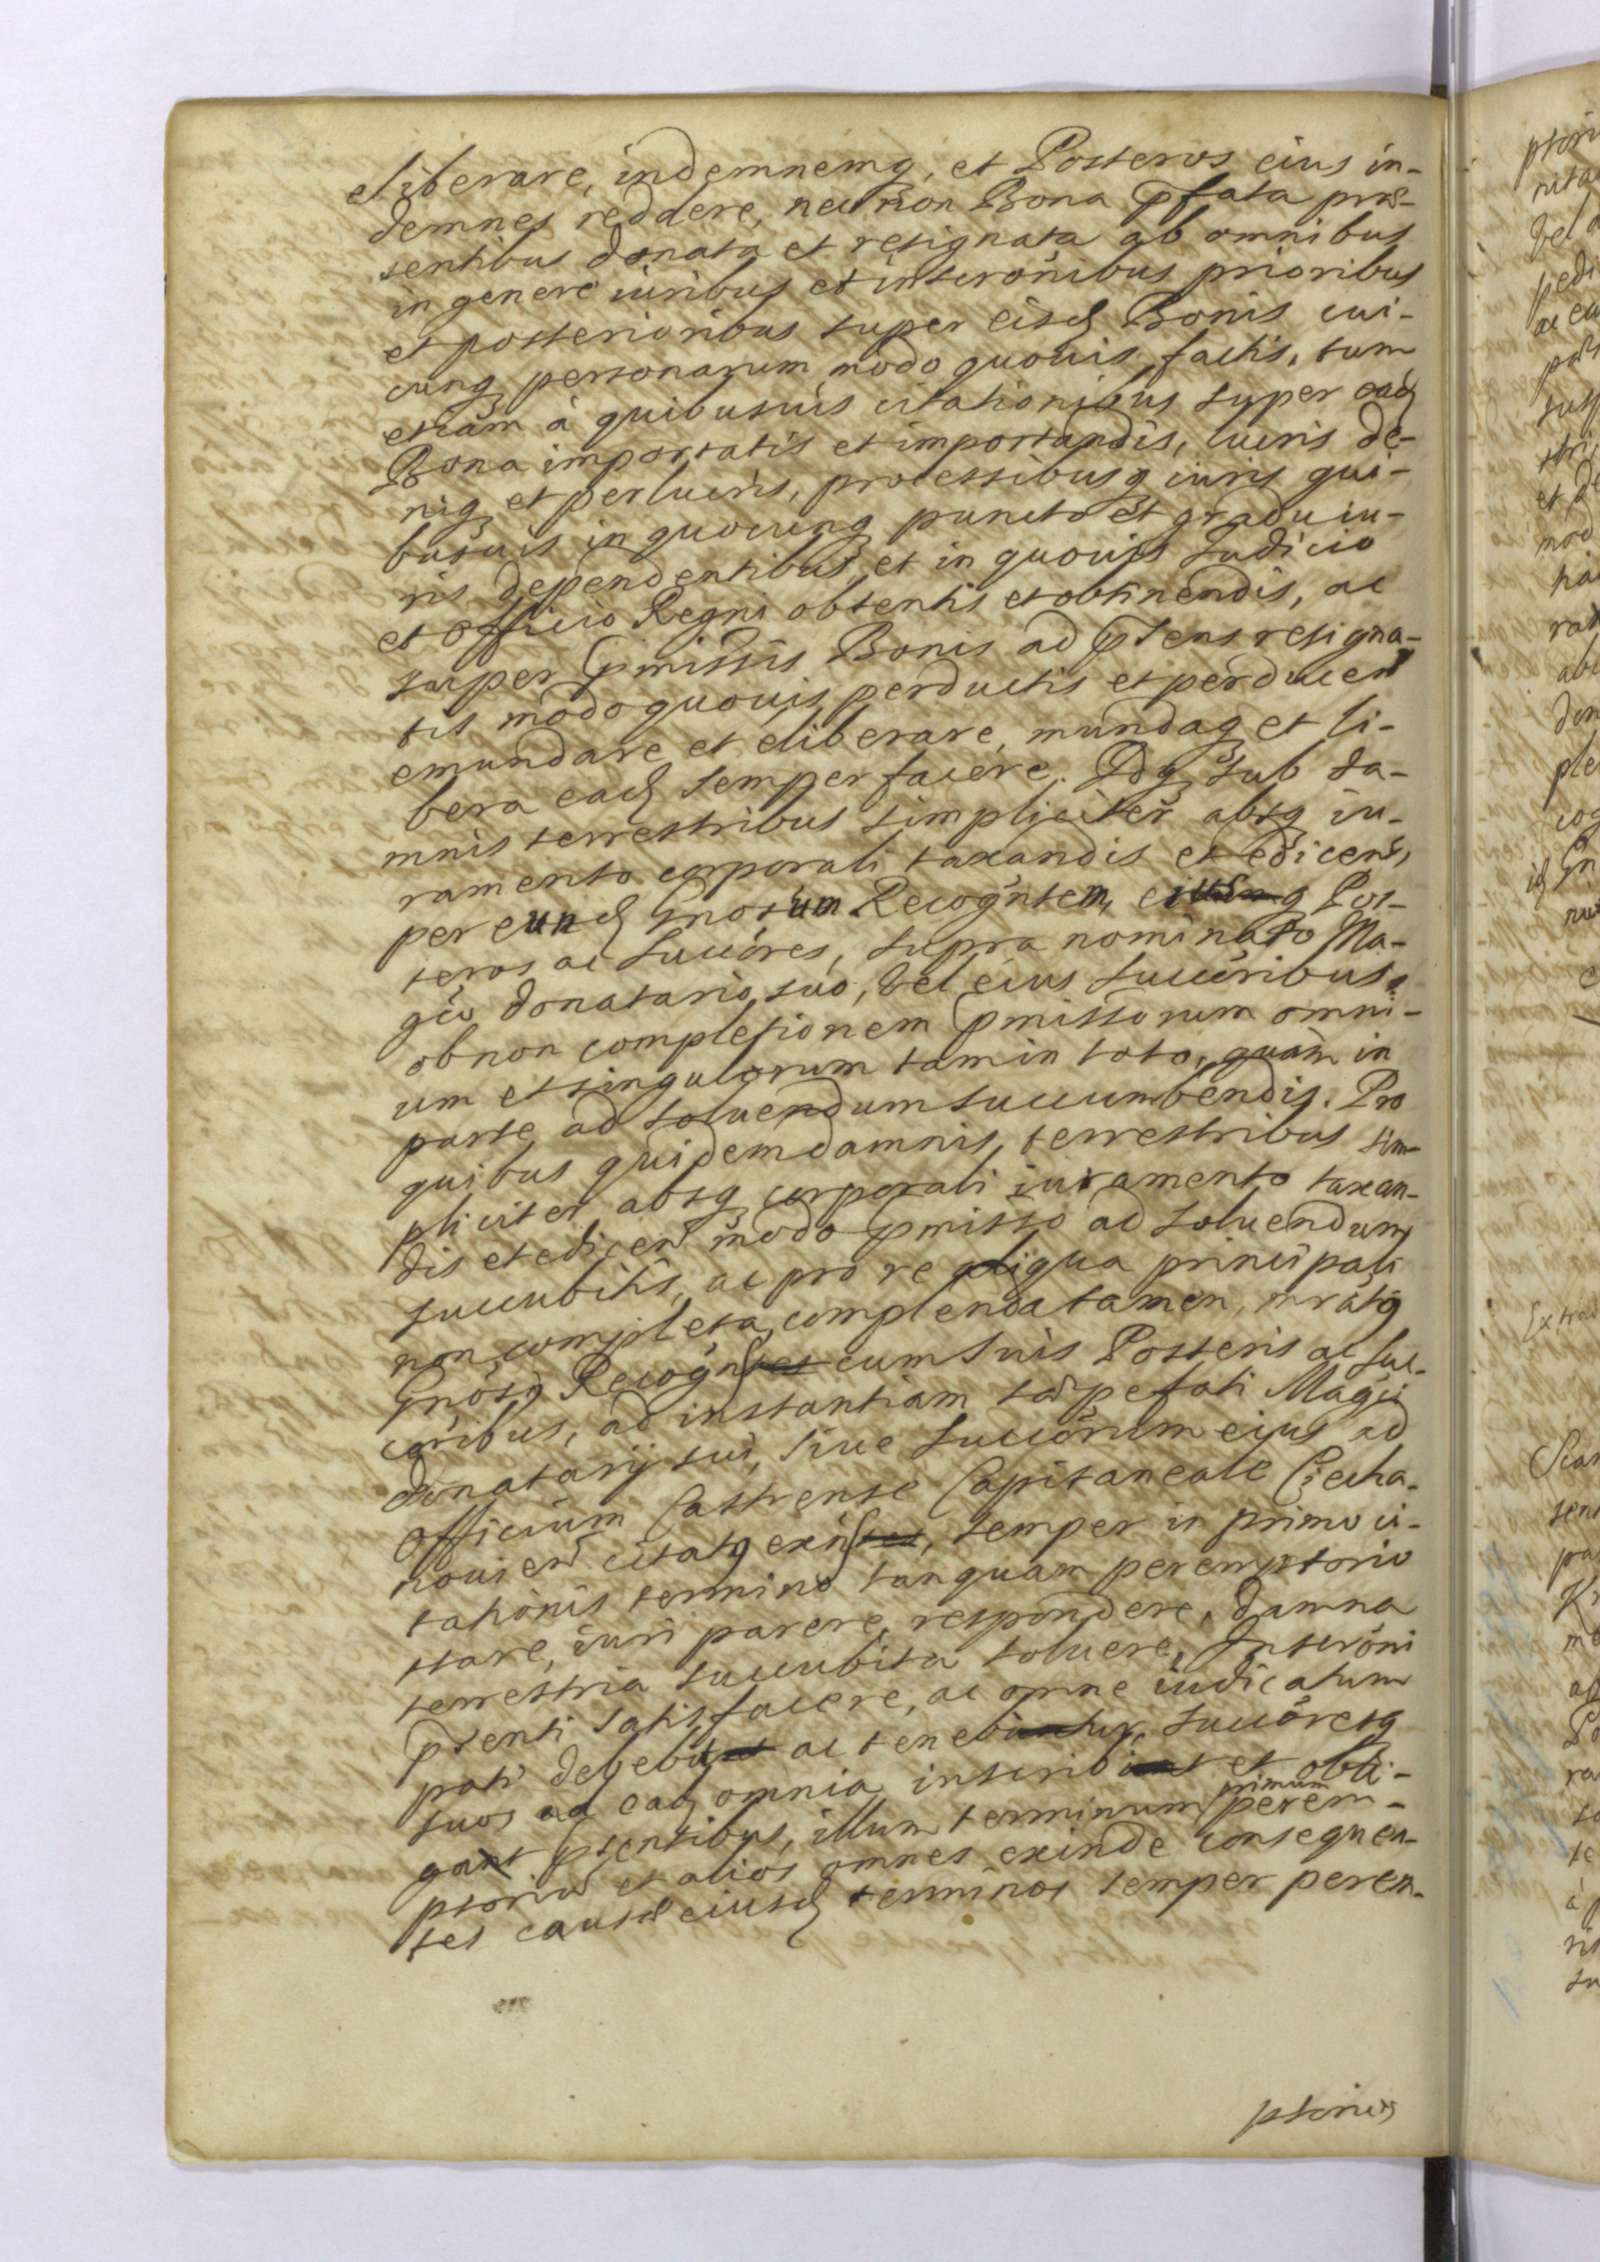 eliberare, indemnemq, et Posteros eius in-
demnes reddere, nec non Bona pfata prae-
sentibus donata et resignata ab omnibus
in genere iuribus et inscronibus prioribus
et posterioribus super eisd Bonis cui-
cunq personarum modo quouis factis, tum
etiam à quibusuis citationibus super ead
Bona importatis et importandis, lucris de-
niq et perlucris, processibusq iuris qui-
busuis in quocunq puncto et gradu iu-
ris dependentibus, et in quouis Judicio
et Officio Regni obtentis et obtinendis, ac
super pmissis Bonis ad pns resigna-
tis modo quouis perductis et perducen
emundare et eliberare, mundaq et li-
bera ead semper facere. Idq sub da-
mnis terrestribus simpliciter absq iu-
ramento corporali taxandis et edicen,
per eund Gnosum Recogntem, eiusq Pos-
teros ac Succres, supra nominato Ma-
gco donatario suo, vel eius Succribus,
ob non completionem pmissorum omni-
um et singulorum tam in toto, quàm in
parte ad soluendum succumbendis. Pro
quibus quidem damnis terrestribus sim-
pliciter absq corporali iuramento taxan-
dis et edicen modo pmisso ad soluendum
succubitis, ac pro re aliqua principali
non completa, complenda tamen, mratg
Gnosg Recogns cum suis Posteris ac Suc-
coribus, ad instantiam saepefati Magci
donatarij sui, siue Succorum eius ad
Officium Castrense Capitaneale Ciecha-
nouien citatg exns, semper in primo ci-
tationis termino tanquam peremptorio
stare, iuri parere, respondere, damna
terrestria succubita soluere, Inscroni
pnti satisfacere, ac omne iudicatum
pati debebit ac tenebitur, succoresq
suos ad ead omnia inscribit et obli-
gat pntibus, illum terminum primum perem-
ptoriu et alios omnes exinde consequen-
tes causae eiusd terminos semper perem-
ptorios